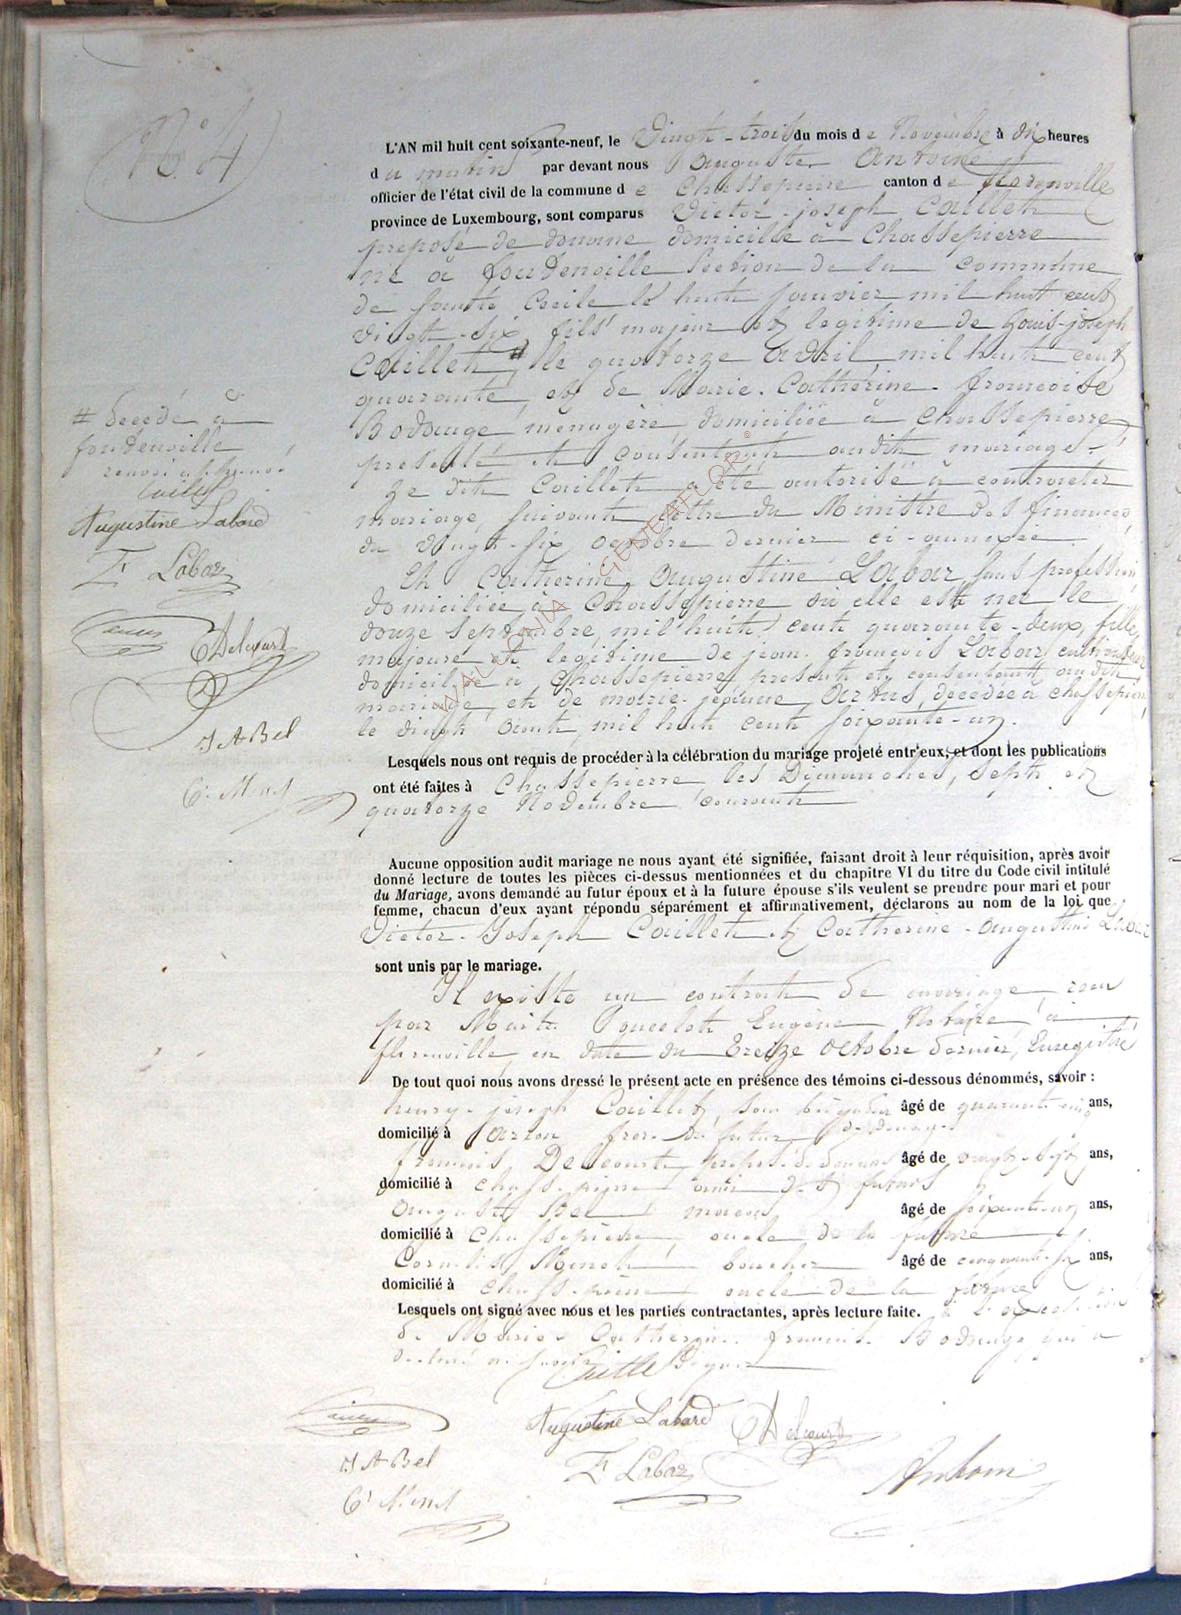 N° 4
L'AN mil huit cent soixante-neuf, le Vingt-trois du mois de Novembre à dix heures
du matin par devant nous Auguste Antoine
officier de l'état civil de la commune de Chassepierre canton de florenville
province de Luxembourg, sont comparus Victor-joseph Caillet
préposé de douane domicilié à Chassepierre
né à fondenville Section de la commune
de Sainte Cecile le huit janvier mil huit cent
vingt-six, fils majeur et légitime de Louis-joseph
Caillet # le quatorze avril mil huit cent
quarante, et de Marie-Catherine-françoise
Bodauge, ménagère, domiciliée à Chassepierre
présente et consentant audit mariage.
Le dit Caillet a été autorisé à contracter
mariage, suivant lettre du Ministre des finances,
du vingt-six octobre dernier ci-annexée.
Et Catherine Augustine Labar, sans profession,
domiciliée à Chassepierre où elle est née le
douze Septembre, mil huit cent quarante-deux, fille
majeure et légitime de jean-françois Labar, cultivateur
domicilié à Chassepierre présent et consentant audit
mariage, et de marie-jeanne Artus, décédée à chassepierre,
le vingt Août, mil huit cent soixante-un.
# décédé à
fondenville
renvoi approuvé
Caillet
Augustine Labard
F Labar
Delcourt
J A Bel
C. Menet
Lesquels nous ont requis de procéder à la célébration du mariage projeté entr'eux, et dont les publications
ont été faites à Chassepierre les Dimanches, Sept et
quatorze Novembre courant
Aucune opposition audit mariage ne nous ayant été signifiée, faisant droit à leur réquisition, après avoir
donné lecture de toutes les pièces ci-dessus mentionnées et du chapitre VI du titre du Code civil intitulé
du Mariage, avons demandé au futur époux et à la future épouse s'ils veulent se prendre pour mari et pour
femme, chacun d'eux ayant répondu séparément et affirmativement, déclarons au nom de la loi que
Victor-Joseph Caillet et Catherine-Augustine Labar
sont unis par le mariage.
Il existe un contrat de mariage reçu
par Maître Poncelet Eugène Notaire à
florenville, en date du treize octobre dernier, Enregistré
De tout quoi nous avons dressé le présent acte en présence des témoins ci-dessous dénommés, savoir :
henry-joseph Caillet, sous brigadier de douanes âgé de quarante cinq ans,
domicilié à Arlon frère du futur
françois Delcourt préposé de douanes âgé de vingt-sept ans,
domicilié à Chassepierre ami des futurs
Auguste Bel âgé de soixante un ans,
domicilié à Chassepierre oncle de la future
Cornelis Menet boucher âgé de cinquante-six ans,
domicilié à Chassepierre oncle de la future
Lesquels ont signé avec nous et les parties contractantes, après lecture faite. à l'exception
de Marie-Catherine-françoise Bodauge qui a
déclaré ne savoir signer
Caillet
Augustine Labard
Delcourt
J A Bel
F Labar
Antoine
C. Menet
WALLONIA GENEAFLOR ©